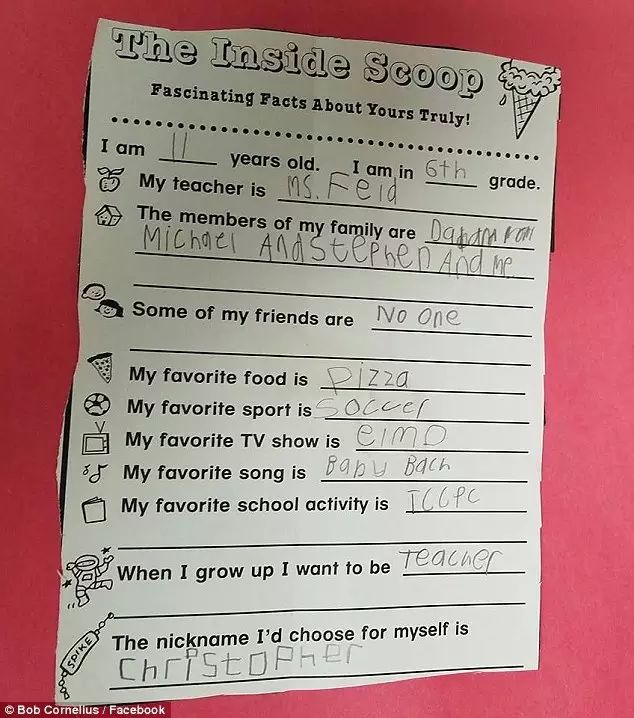 The Inside Scoop
Fascinating Facts About Yours Truly!
I am 11 years old. I am in 6th grade.
My teacher is Ms. Feid
The members of my family are
Michael And Stephen And me
Some of my friends are No one
My favorite food is pizza
My favorite sport is soccer
My favorite TV show is elmo
My favorite song is Baby Bach
My favorite school activity is
When I grow up I want to be Teacher
The nickname I'd choose for myself is
SPIKE
Christopher
© Bob Cornelius / Facebook